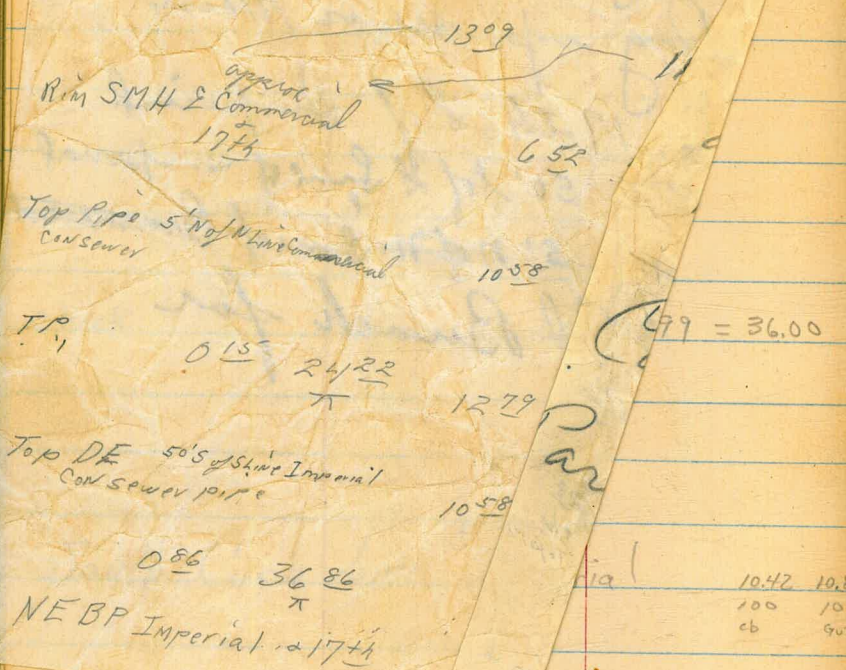 13 09
11
approx
Rim SMH & Commercial
+
17th
6 52
Top Pipe 5'N of N Line Commercial
Con sewer
10 58
T.P.1
0 15 24 22
π
12 79
Top DE 50'S of S Line Imperial
Con sewer pipe
10 58
0 86 36 86
π
NE BP Imperial & 17th
99 = 36.00
Par
10.42
100
cb